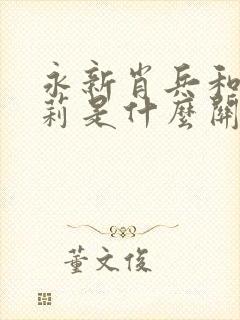 永新肖兵和
莉是什麼關
董文俊